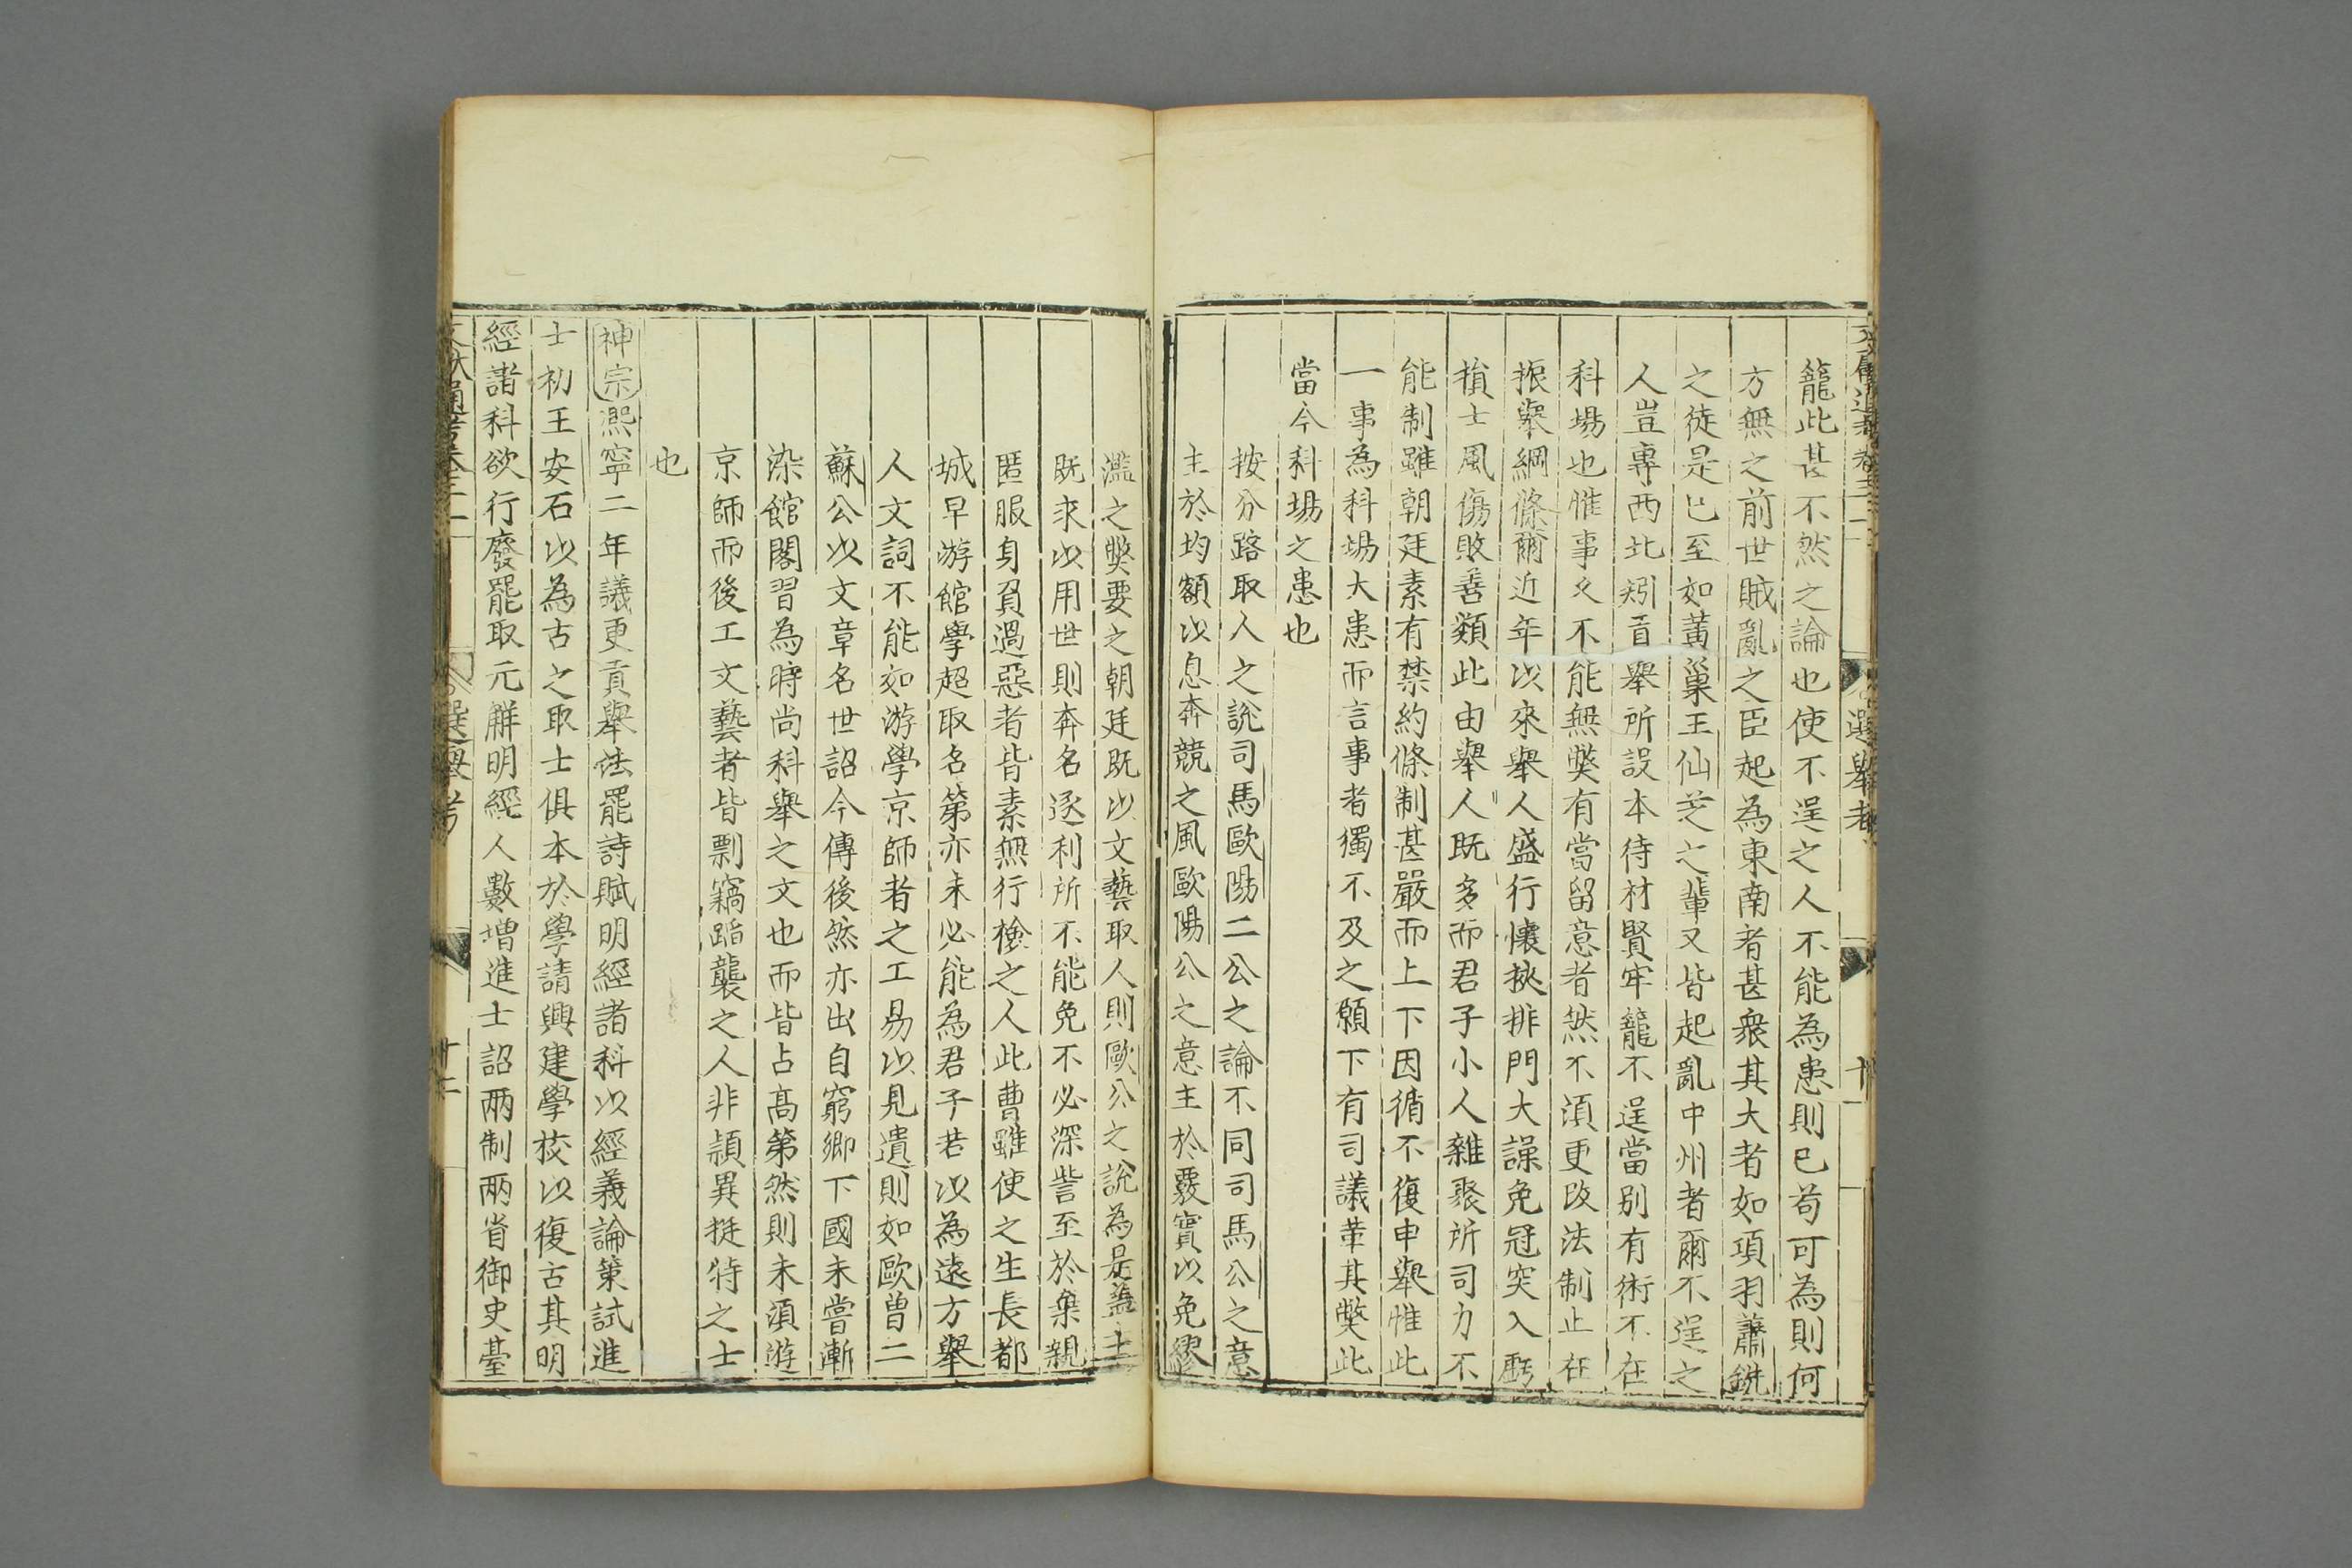 籠此甚不然之論也使不逞之人不能為患則已苟可為則何
方無之前世賊亂之臣起為東南者甚衆其大者如項羽蕭銑
之徒是已至如黃巢王仙芝之輩又皆起亂中州者爾不逞之
人豈專西北矧貢舉所設本待材賢牢籠不逞當別有術不在
科場也惟事久不能無獘有當留意者然不湏更改法制止在
振舉綱條爾近年以來舉人盛行懷挾排門大譟免冠突入虧
損士風傷敗善類此由舉人既多而君子小人雜聚所司力不
能制雖朝廷素有禁約條制甚嚴而上下因循不復申舉惟此
一事為科場大患而言事者獨不及之願下有司議革其獘此
當今科場之患也
按分路取人之說司馬歐陽二公之論不同司馬公之意
主於均額以息奔競之風歐陽公之意主於覈實以免繆
濫之獘要之朝廷既以文藝取人則歐公之說為是蓋士
既求以用世則奔名逐利所不能免不必深訾至於棄親
匿服身負過惡者皆素無行檢之人此曹雖使之生長都
城早游館學超取名第亦未必能為君子若以為遠方舉
人文詞不能如游學京師者之工易以見遺則如歐曾二
蘇公以文章名世詔今傳後然亦出自窮鄉下國未嘗漸
染館閣習為時尚科舉之文也而皆占高第然則未湏遊
京師而後工文藝者皆剽竊蹈襲之人非頴異挺特之士
也
神宗熙寧二年議更貢舉法罷詩賦明經諸科以經義論策試進
士初王安石以為古之取士俱本於學請興建學校以復古其明
經諸科欲行廢罷取元解明經人數增進士詔兩制兩省御史臺
文獻通考卷三十一
選舉考
十二